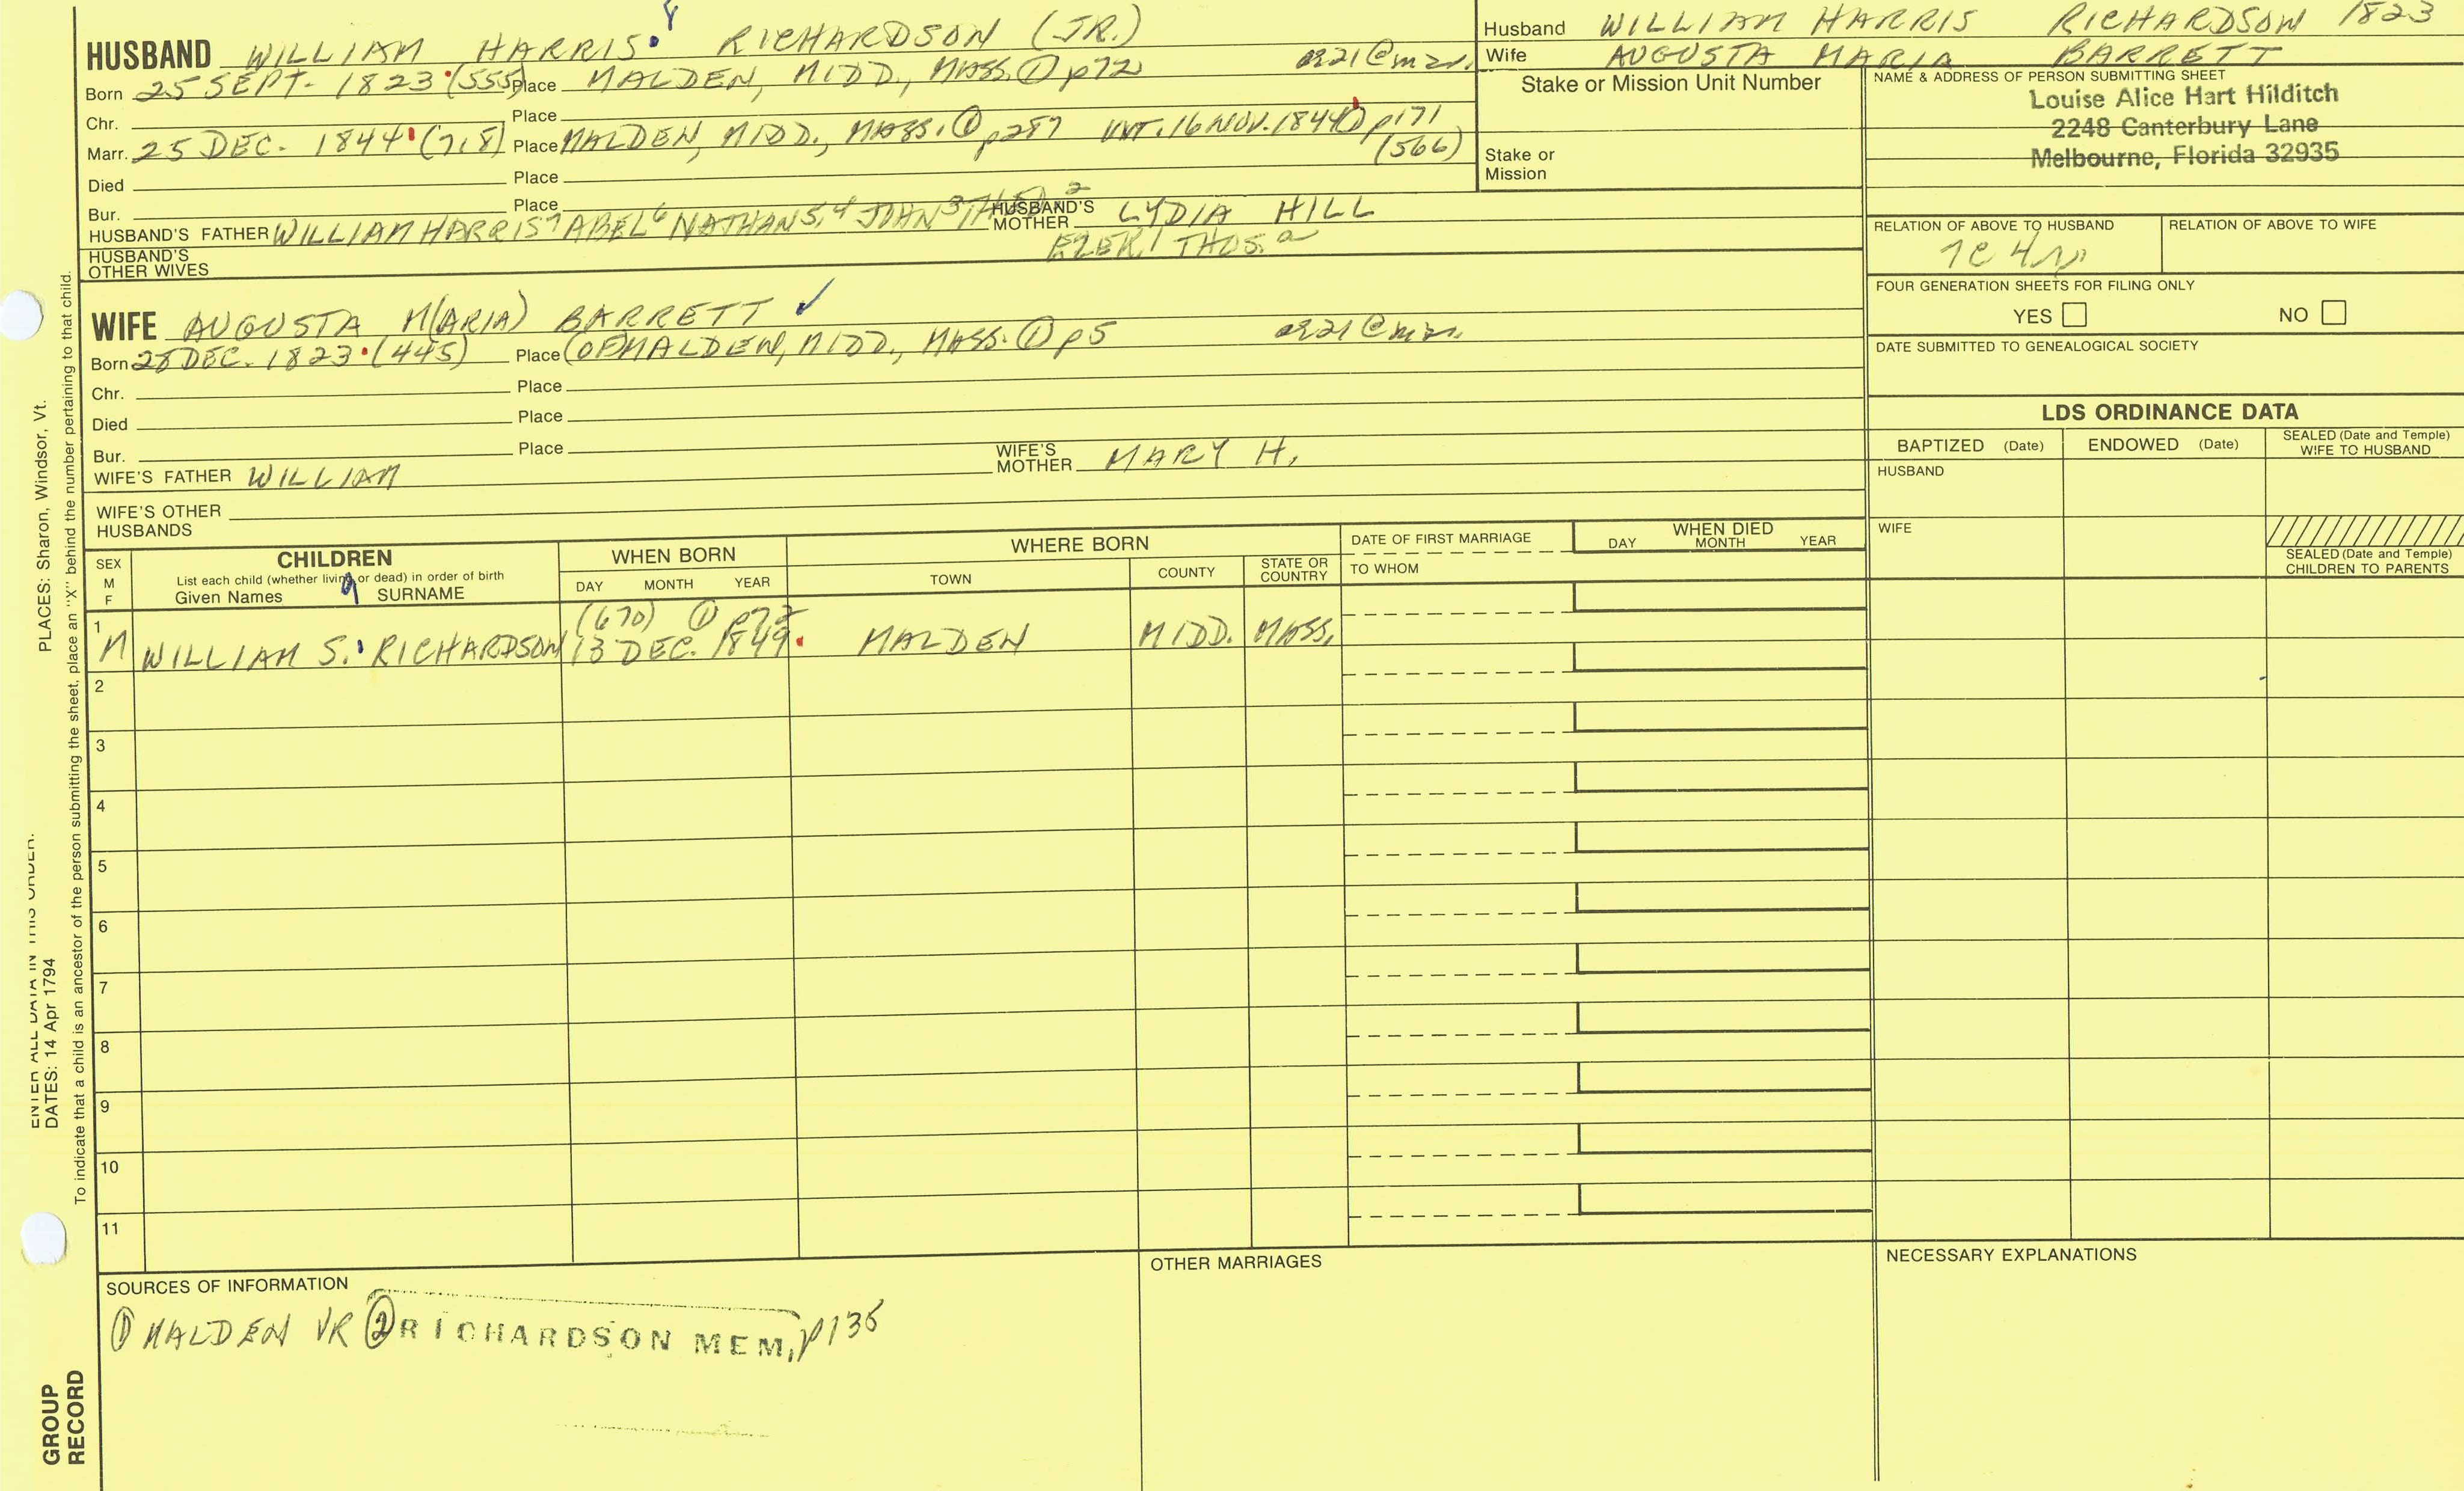 HUSBAND WILLIAM HARRIS 8 RICHARDSON (JR.)
Born 25 SEPT. 1823 (555) Place MALDEN, MIDD., MASS. ① p72 ae21@m
Chr. Place
Marr. 25 DEC. 1844 (7,8) Place MALDEN, MIDD., MASS. ① p287 INT. 16 NOV. 1844 ① p171
(566)
Died Place
Bur. Place
HUSBAND'S FATHER WILLIAM HARRIS 7 ABEL 6 NATHAN 5,4 JOHN 3 2 HUSBAND'S MOTHER LYDIA HILL
EZEK 1 THOS. a
HUSBAND'S OTHER WIVES
Husband WILLIAM HARRIS RICHARDSON 1823
Wife AUGUSTA MARIA BARRETT
Stake or Mission Unit Number
Stake or
Mission
NAME & ADDRESS OF PERSON SUBMITTING SHEET
Louise Alice Hart Hilditch
2248 Canterbury Lane
Melbourne, Florida 32935
RELATION OF ABOVE TO HUSBAND RELATION OF ABOVE TO WIFE
1C 4
FOUR GENERATION SHEETS FOR FILING ONLY
YES NO
DATE SUBMITTED TO GENEALOGICAL SOCIETY
WIFE AUGUSTA M(ARIA) BARRETT ✓
Born 28 DEC. 1823 (445) Place (OF MALDEN, MIDD., MASS. ① p5 ae21@m
Chr. Place
Died Place
Bur. Place
WIFE'S FATHER WILLIAM WIFE'S MOTHER MARY H.
WIFE'S OTHER
HUSBANDS
LDS ORDINANCE DATA
BAPTIZED (Date) ENDOWED (Date) SEALED (Date and Temple)
WIFE TO HUSBAND
HUSBAND
WIFE
SEALED (Date and Temple)
CHILDREN TO PARENTS
SEX
M
F
CHILDREN
List each child (whether living or dead) in order of birth
Given Names 9 SURNAME
WHEN BORN
DAY MONTH YEAR
WHERE BORN
TOWN COUNTY STATE OR COUNTRY
DATE OF FIRST MARRIAGE
TO WHOM
WHEN DIED
DAY MONTH YEAR
1 (670) ① p72
M WILLIAM S. RICHARDSON 13 DEC. 1849 MALDEN MIDD. MASS.
2
3
4
5
6
7
8
9
10
11
SOURCES OF INFORMATION
① MALDEN VR ② RICHARDSON MEM, p135
OTHER MARRIAGES
NECESSARY EXPLANATIONS
ENTER ALL DATA IN THIS ORDER:
DATES: 14 Apr 1794 PLACES: Sharon, Windsor, Vt.
To indicate that a child is an ancestor of the person submitting the sheet, place an "X" behind the number pertaining to that child.
GROUP
RECORD